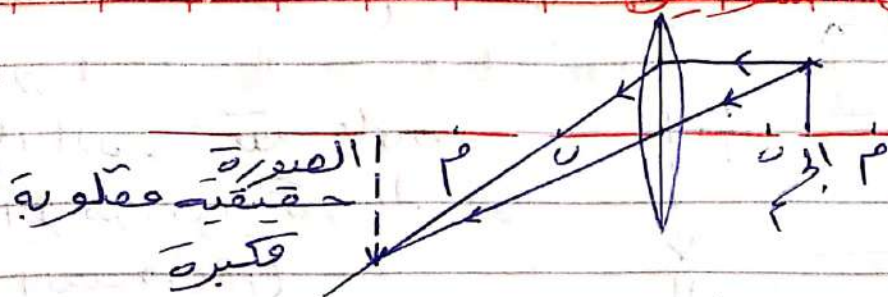 م ن ن م
الجسم
الصورة
حقيقية مقلوبة
مكبرة